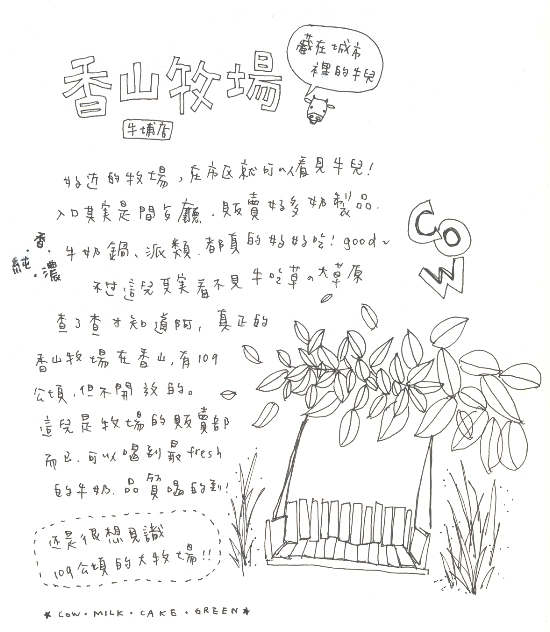 香山牧場
牛埔店
藏在城市
裡的牛兒
好近的牧場，在市区就可以看見牛兒！
入口其实是間餐廳，販賣好多奶製品.
牛奶鍋、派類.都真的好好吃！good~
香.純.濃
不過這兒其实看不見牛吃草的大草原
查了查才知道阿，真正的
香山牧場在香山，有109
公頃，但不開放的。
這兒是牧場的販賣部
而已.可以喝到最fresh
的牛奶.品質喝的到！
還是很想見識
109公頃的大牧場!!
COW
* COW · MILK · CAKE · GREEN *